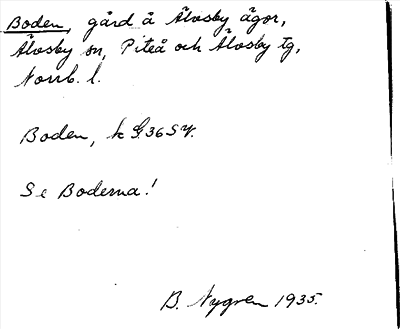 Boden, gård å Älvsby ägor,
Älvsby sn, Piteå och Älvsby tg,
Norrb. l.
Boden, k G.36 SV.
Se Boderna!
B. Nygren 1935.